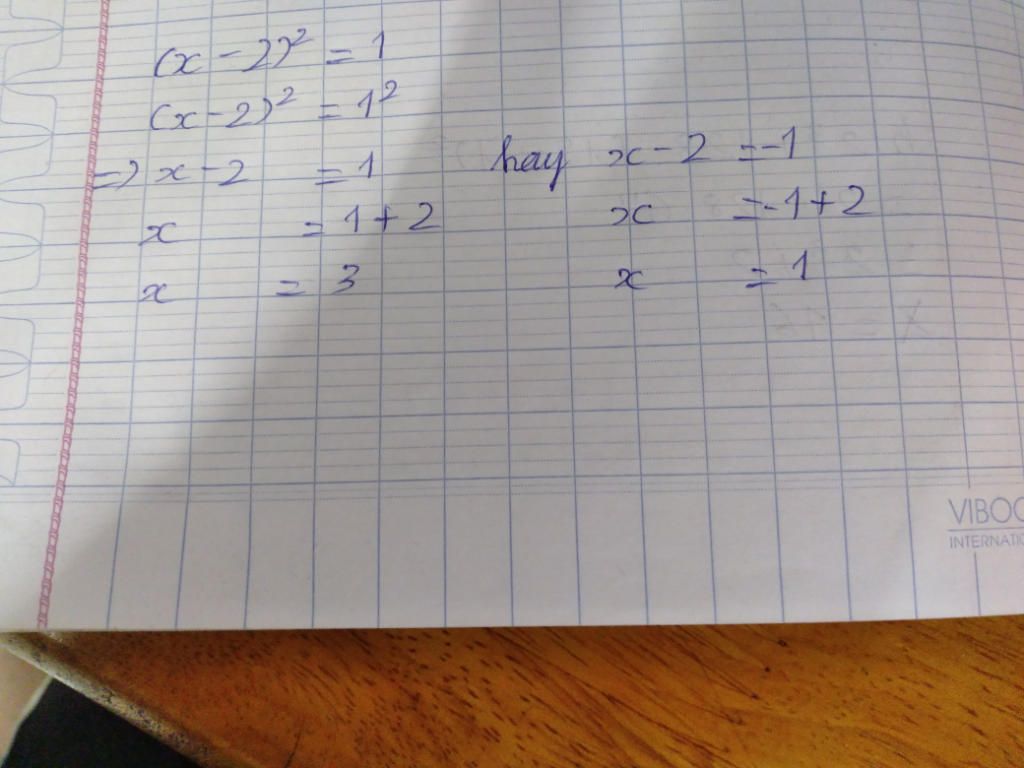 (x - 2)² = 1
(x - 2)² = 1²
=> x - 2 = 1 hay x - 2 = -1
x = 1 + 2 x = -1 + 2
x = 3 x = 1
VIBOO
INTERNATIO